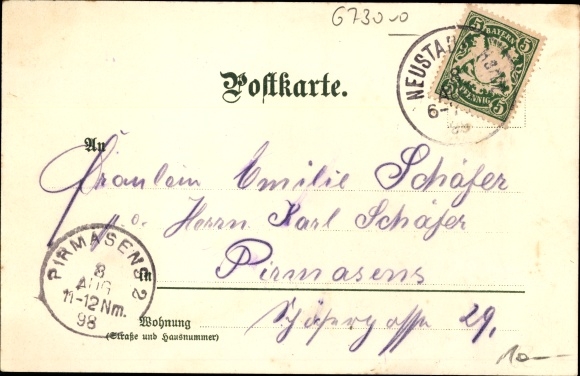 67300
5 BAYERN 5
5 PFENNIG 5
NEUSTA
6-7
98
Postkarte.
An
Fräulein Emilie Schäfer
p. a. Herrn Karl Schäfer
in Pirmasens
PIRMASENS 2
8
AUG
11-12 Nm.
98
Wohnung Schäfergasse 29.
(Straße und Hausnummer)
10.—